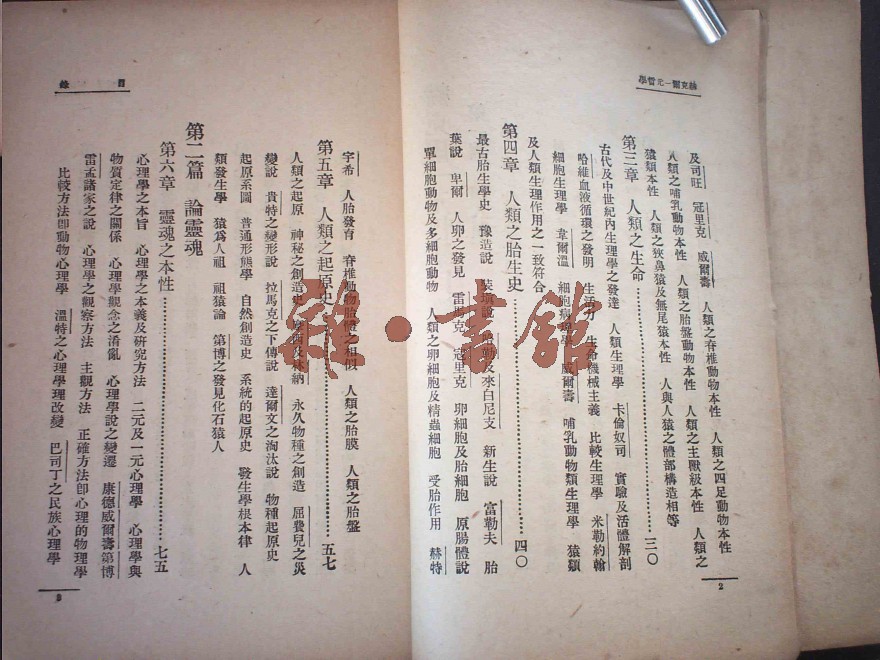 赫克爾一元哲學
及司旺　冠里克　威爾壽　人類之脊椎動物本性　人類之四足動物本性
人類之哺乳動物本性　人類之胎盤動物本性　人類之主獸級本性　人類之
猿類本性　人類之狹鼻猿及無尾猿本性　人與人猿之體部構造相等
第三章　人類之生命…………三〇
古代及中世紀內生理學之發達　人類生理學　卡倫奴司　實驗及活體解剖
哈維血液循環之發明　生活力　生命機械主義　比較生理學　米勒約翰
細胞生理學　韋爾溫　細胞病理學　威爾壽　哺乳動物類生理學　猿類
及人類生理作用之一致符合
第四章　人類之胎生史…………四〇
最古胎生學史　豫造說　裝璜說　及來白尼支　新生說　富勒夫　胎
葉說　卑爾　人卵之發見　雷馬克　寇里克　卵細胞及胎細胞　原腸體說
單細胞動物及多細胞動物　人類之卵細胞及精蟲細胞　受胎作用　赫特
2
目錄
宇希　人胎發育　脊椎動物胎體之相似　人類之胎膜　人類之胎盤
第五章　人類之起原史…………五七
人類之起原　神秘之創造史　摩西及林納　永久物種之創造　屈費兒之災
變說　貴特之變形說　拉馬克之下傳說　達爾文之淘汰說　物種起原史
起原系圖　普通形態學　自然創造史　系統的起原史　發生學根本律　人
類發生學　猿爲人祖　祖猿論　第博之發見化石猿人
第二篇　論靈魂
第六章　靈魂之本性…………七五
心理學之本旨　心理學之本義及研究方法　二元及一元心理學　心理學與
物質定律之關係　心理學觀念之淆亂　心理學說之變遷　康德威爾壽第博
雷孟諸家之說　心理學之觀察方法　主觀方法　正確方法卽心理的物理學
比較方法卽動物心理學　溫特之心理學理改變　巴司丁之民族心理學
3
雜·書館